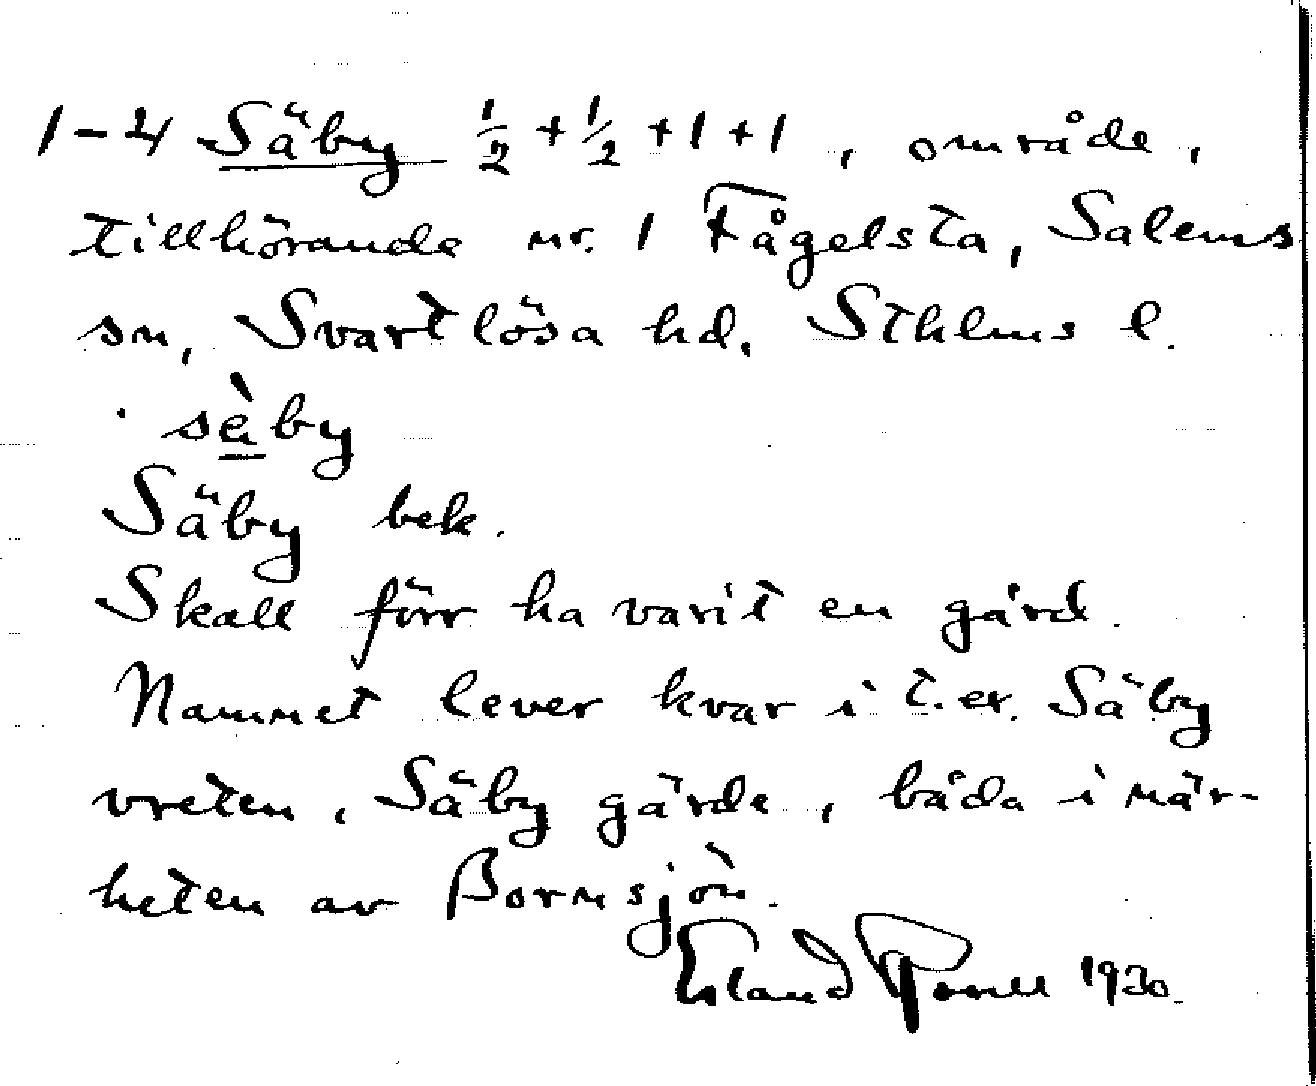 1-4 Säby ½ + ½ + 1 + 1, område,
tillhörande nr. 1 Fågelsta, Salems
sn, Svartlösa hd. Sthlms l.
sèby
Säby bek.
Skall förr ha varit en gård.
Namnet lever kvar i t.ex. Säby
vreten, Säby gärde, båda i när-
heten av Bornsjön.
Erland 1930.